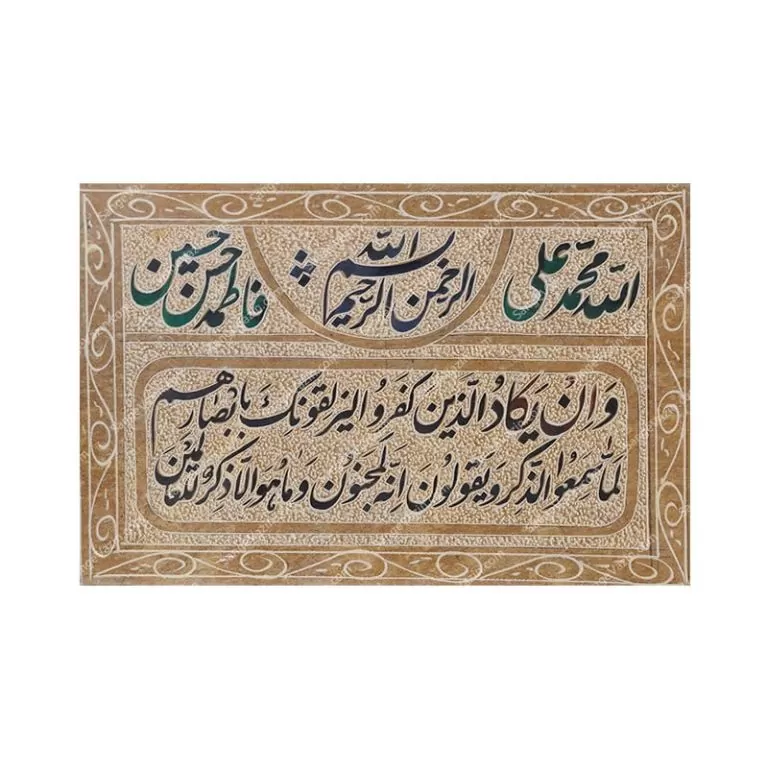 الله محمد علی
بسم الله الرحمن الرحیم
فاطمه حسن حسین
وَاِنْ یَکادُ الَّذینَ کَفَرُوا لَیُزْلِقُونَکَ بِاَبْصارِهِمْ
لَمّا سَمِعُوا الذِّکْرَ وَیَقُولُونَ اِنَّهُ لَمَجْنُونٌ وَ ما هُوَ اِلّا ذِکْرٌ لِلْعالَمینَ